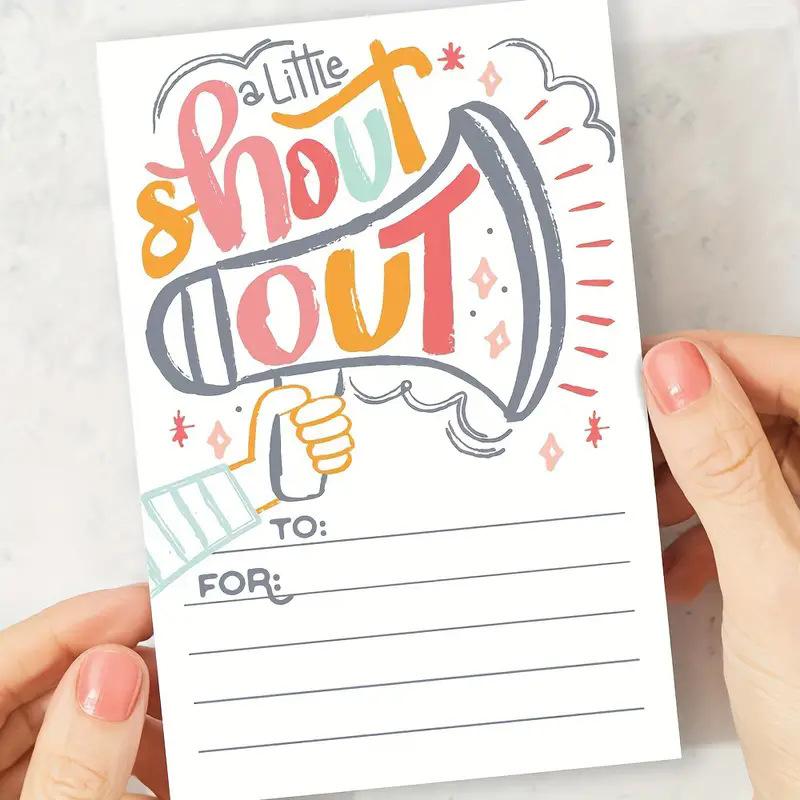 a Little
shout
OUT
TO:
FOR: